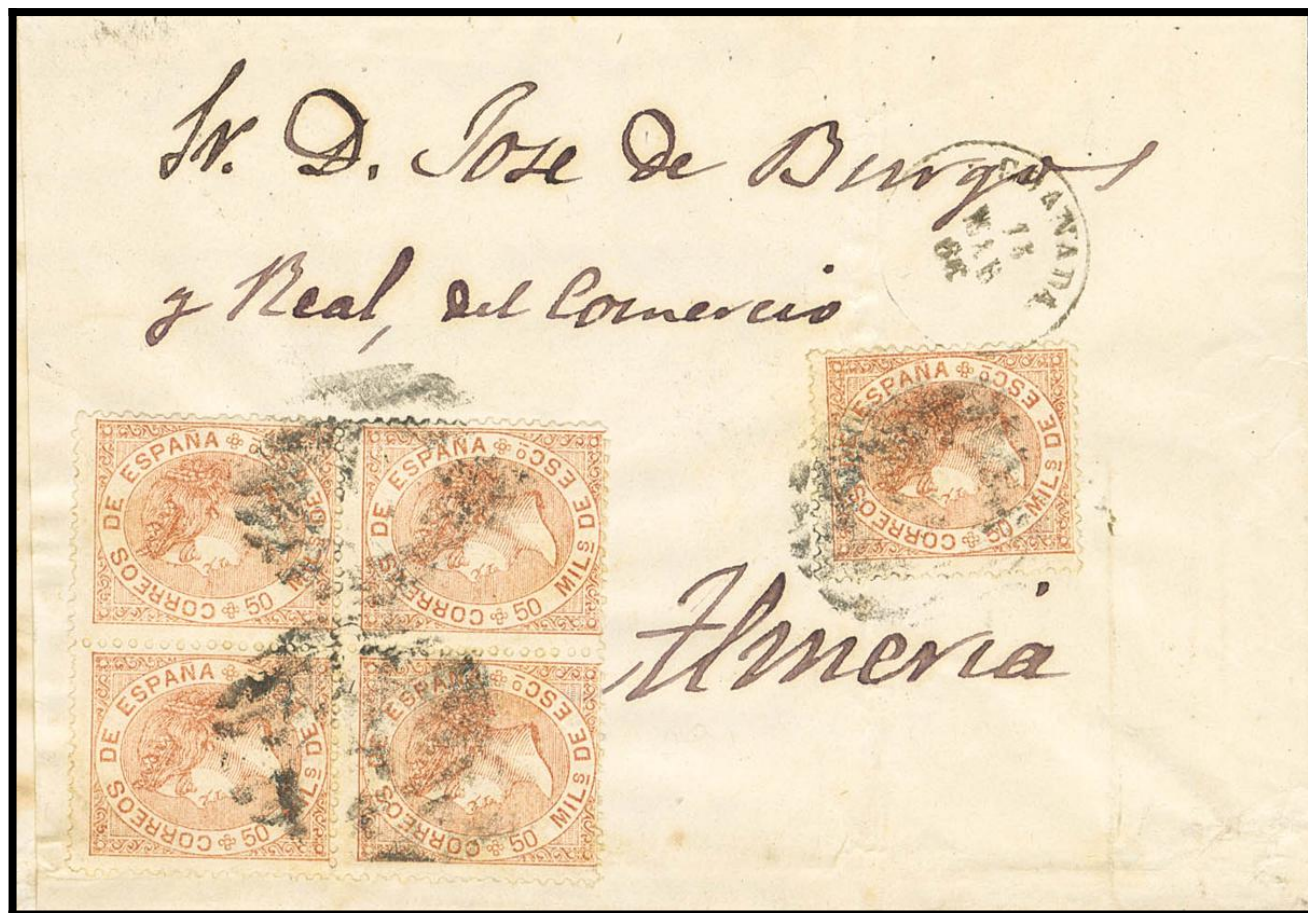 Sr. D. Jose de Burgos
y Real, del Comercio
Almeria
GRANADA
MAR
CORREOS DE ESPAÑA
50 MILS DE
CORREOS DE ESPAÑA
50 MILS DE ESCO
CORREOS DE ESPAÑA
50 MILS DE ESCO
CORREOS DE ESPAÑA
50 MILS DE
CORREOS DE ESPAÑA
50 MILS DE ESCO